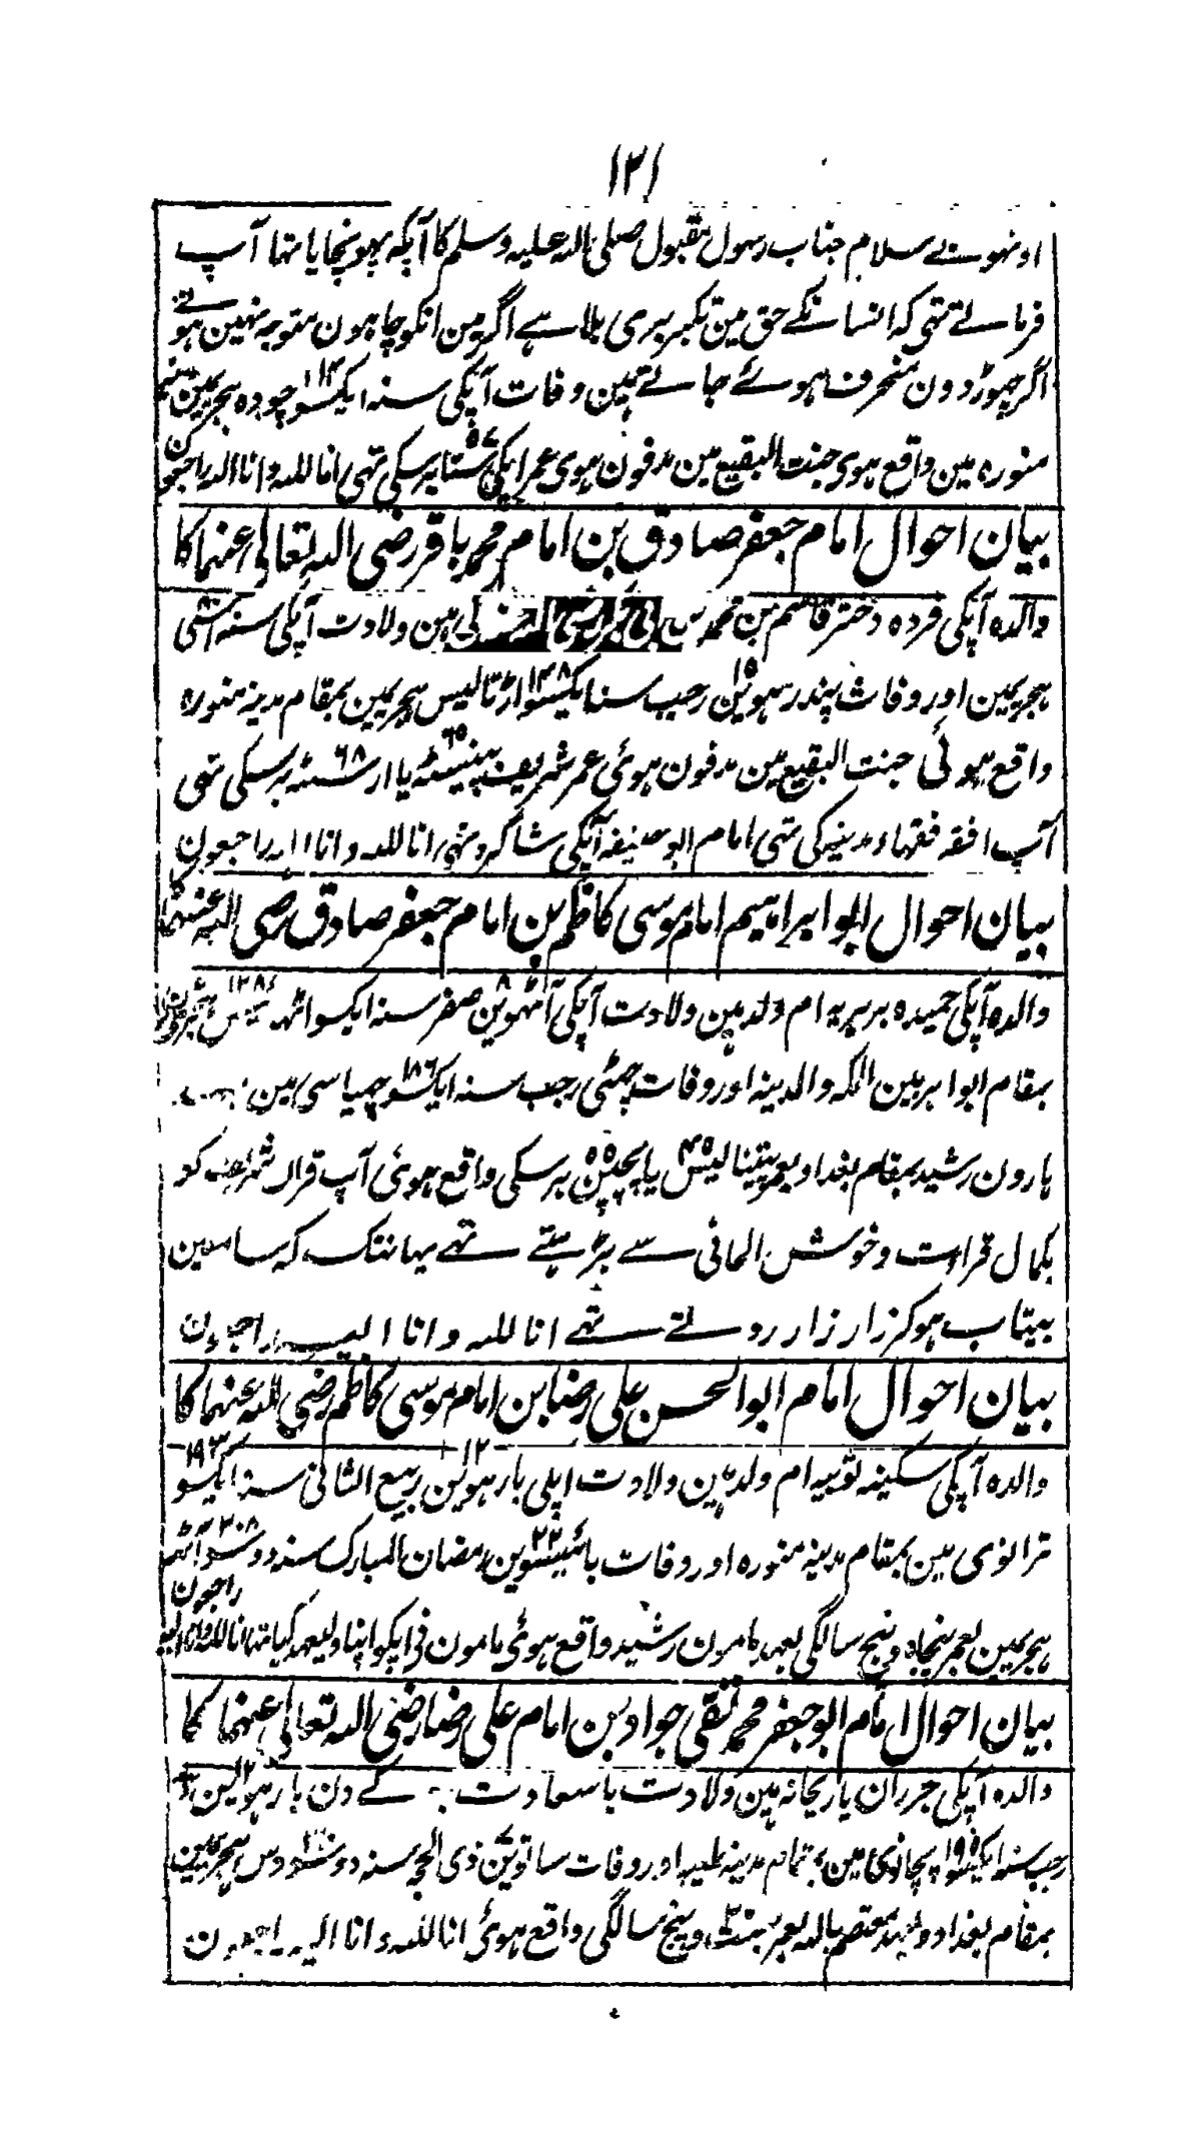 ۱۲۱
اونہونے سلام جناب رسول مقبول صلی اللہ علیہ وسلم کا آپکو پہونچایا تہا آپ
فرماتے تہی کہ انسانکے حق مین تکبر بری بلا ہے اگر مین انکو چاہون متوجہ نہین ہوتے
اگر چہوڑ دون منحرف ہوئے جاتے ہین وفات آپکی سنہ ایکسو ۱۱۴ چودہ ہجریمین
منورہ مین واقع ہوی جنت البقیع مین مدفون ہوی عمر آپکی ۵۷ ستاون برسکی تہی انا للہ وانا الیہ راجعون
بیان احوال امام جعفر صادق بن امام محمد باقر رضی اللہ تعالی عنہما کا
والدہ آپکی فردہ دختر قاسم بن محمد ہین ولادت آپکی سنہ اسّی
ہجریمین اور وفات پندرہوین ۱۵ رجب سنہ ایکسو ۱۴۸ اڑتالیس ہجریمین بمقام مدینہ منورہ
واقع ہوئی جنت البقیع مین مدفون ہوئی عمر شریف پینسٹہ ۶۵ یا ارسٹہ ۶۸ برسکی تہی
آپ افقہ فقہاء مدینہ کی تہی امام ابو حنیفہ آپکی شاگرد تہی انا للہ وانا الیہ راجعون
بیان احوال ابو ابراہیم امام موسی کاظم بن امام جعفر صادق رضی اللہ عنہما
والدہ آپکی حمیدہ بربریہ ام ولد ہین ولادت آپکی آٹہوین ۸ صفر سنہ ایکسو
بمقام ابوا بین المکہ والمدینہ اور وفات چہٹی رجب سنہ ایکسو ۱۸۶ چہیاسی مین
ہارون رشید بمقام بغداد بعمر پینتالیس ۴۵ یا پچپن ۵۵ برسکی واقع ہوئی آپ قرآن شریف کو
بکمال قرات و خوش الحانی سے پڑہتے تہے یہانتک کہ سامعین
بیتاب ہوکر زار زار روتے تہے انا للہ وانا الیہ راجعون
بیان احوال امام ابو الحسن علی رضا بن امام موسی کاظم رضی اللہ عنہما کا
والدہ آپکی سکینہ نوبیہ ام ولد ہین ولادت آپکی بارہوین ۱۲ ربیع الثانی سنہ ایکسو ۱۹۳
ترانوی مین بمقام مدینہ منورہ اور وفات بائیسوین ۲۲ رمضان المبارک سنہ دوسو آٹہ ۲۰۸
ہجریمین بعمر پنجاہ و پنج سالگی بعہد مامون رشید واقع ہوئی مامون نی آپکو اپنا ولیعہد کیا تہا انا للہ وانا الیہ راجعون
بیان احوال امام ابو جعفر محمد تقی جواد بن امام علی رضا رضی اللہ تعالی عنہما کا
والدہ آپکی یا ریحانہ ہین ولادت باسعادت کے دن بارہوین ۱۲
رجب سنہ ایکسو پچانوی مین بمقام مدینہ طیبہ اور وفات ساتوین ذی الحجہ سنہ دوسو دس ہجریمین
بمقام بغداد و بعہد معتصم باللہ بعمر و پنج سالگی واقع ہوئی انا للہ وانا الیہ راجعون